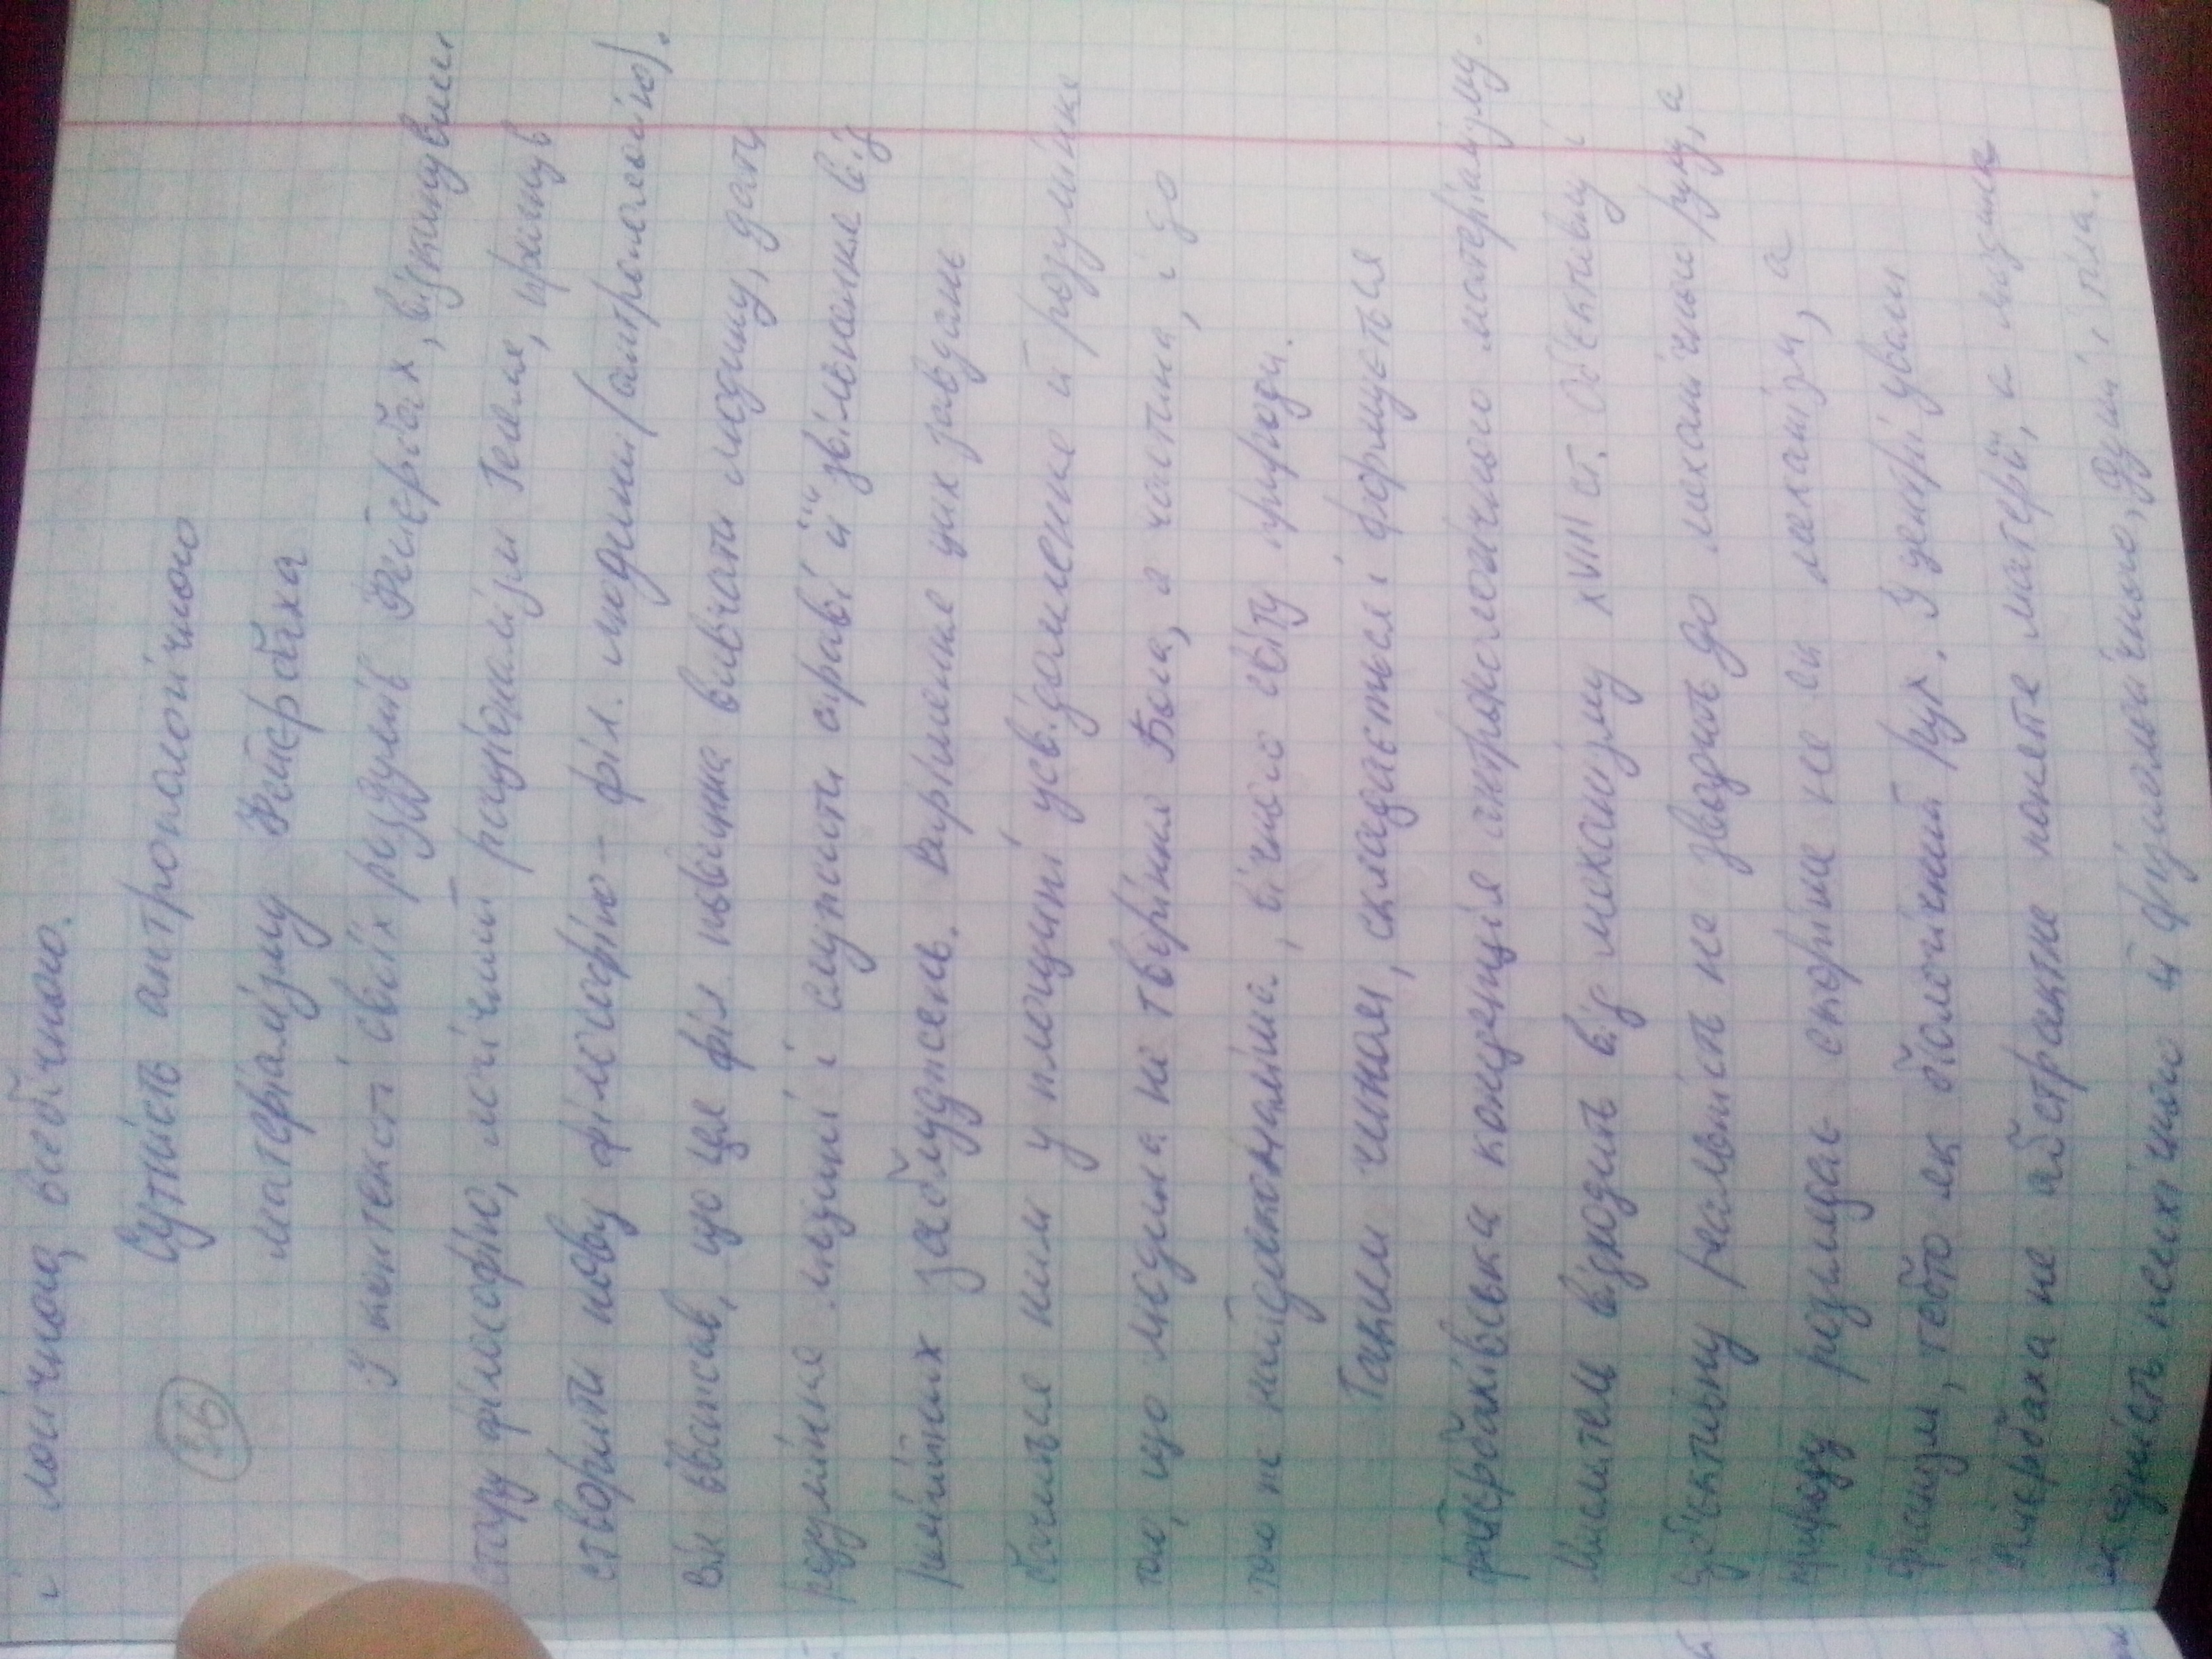 і логічного, всебічного.
36
Сутність антропологічного
матеріалізму Фейєрбаха
У контексті своїх роздумів Фейєрбах, відкинувши
стару філософію, логічний раціоналізм Гегеля, прагнув
створити нову філософію – філ. людини (антропологію).
Він вважав, що ця філ повинна вивчати людину, дати
розуміння людині і слугності справі її звільнення від
релігійних заблуджень. Вирішення цих завдань
бачилося ним у площині усвідомлення й розуміння
того, що людина не творіння Бога, а частина, і до
того ж найдосконаліша, вічного світу природи.
Таким чином, складається і формується
фейєрбахівська концепція антропологічного матеріалізму.
Мислитель відходить від механізму XVIII ст. Об'єктивну і
суб'єктивну реальність не зводить до механічного руху, а
природу розглядає скоріше не як механізм, а
організм, тобто як біологічний рух. У центрі уваги
Фейєрбаха не абстрактне поняття матерії, а людина
як єдність психічного й фізіологічного, душі і тіла.